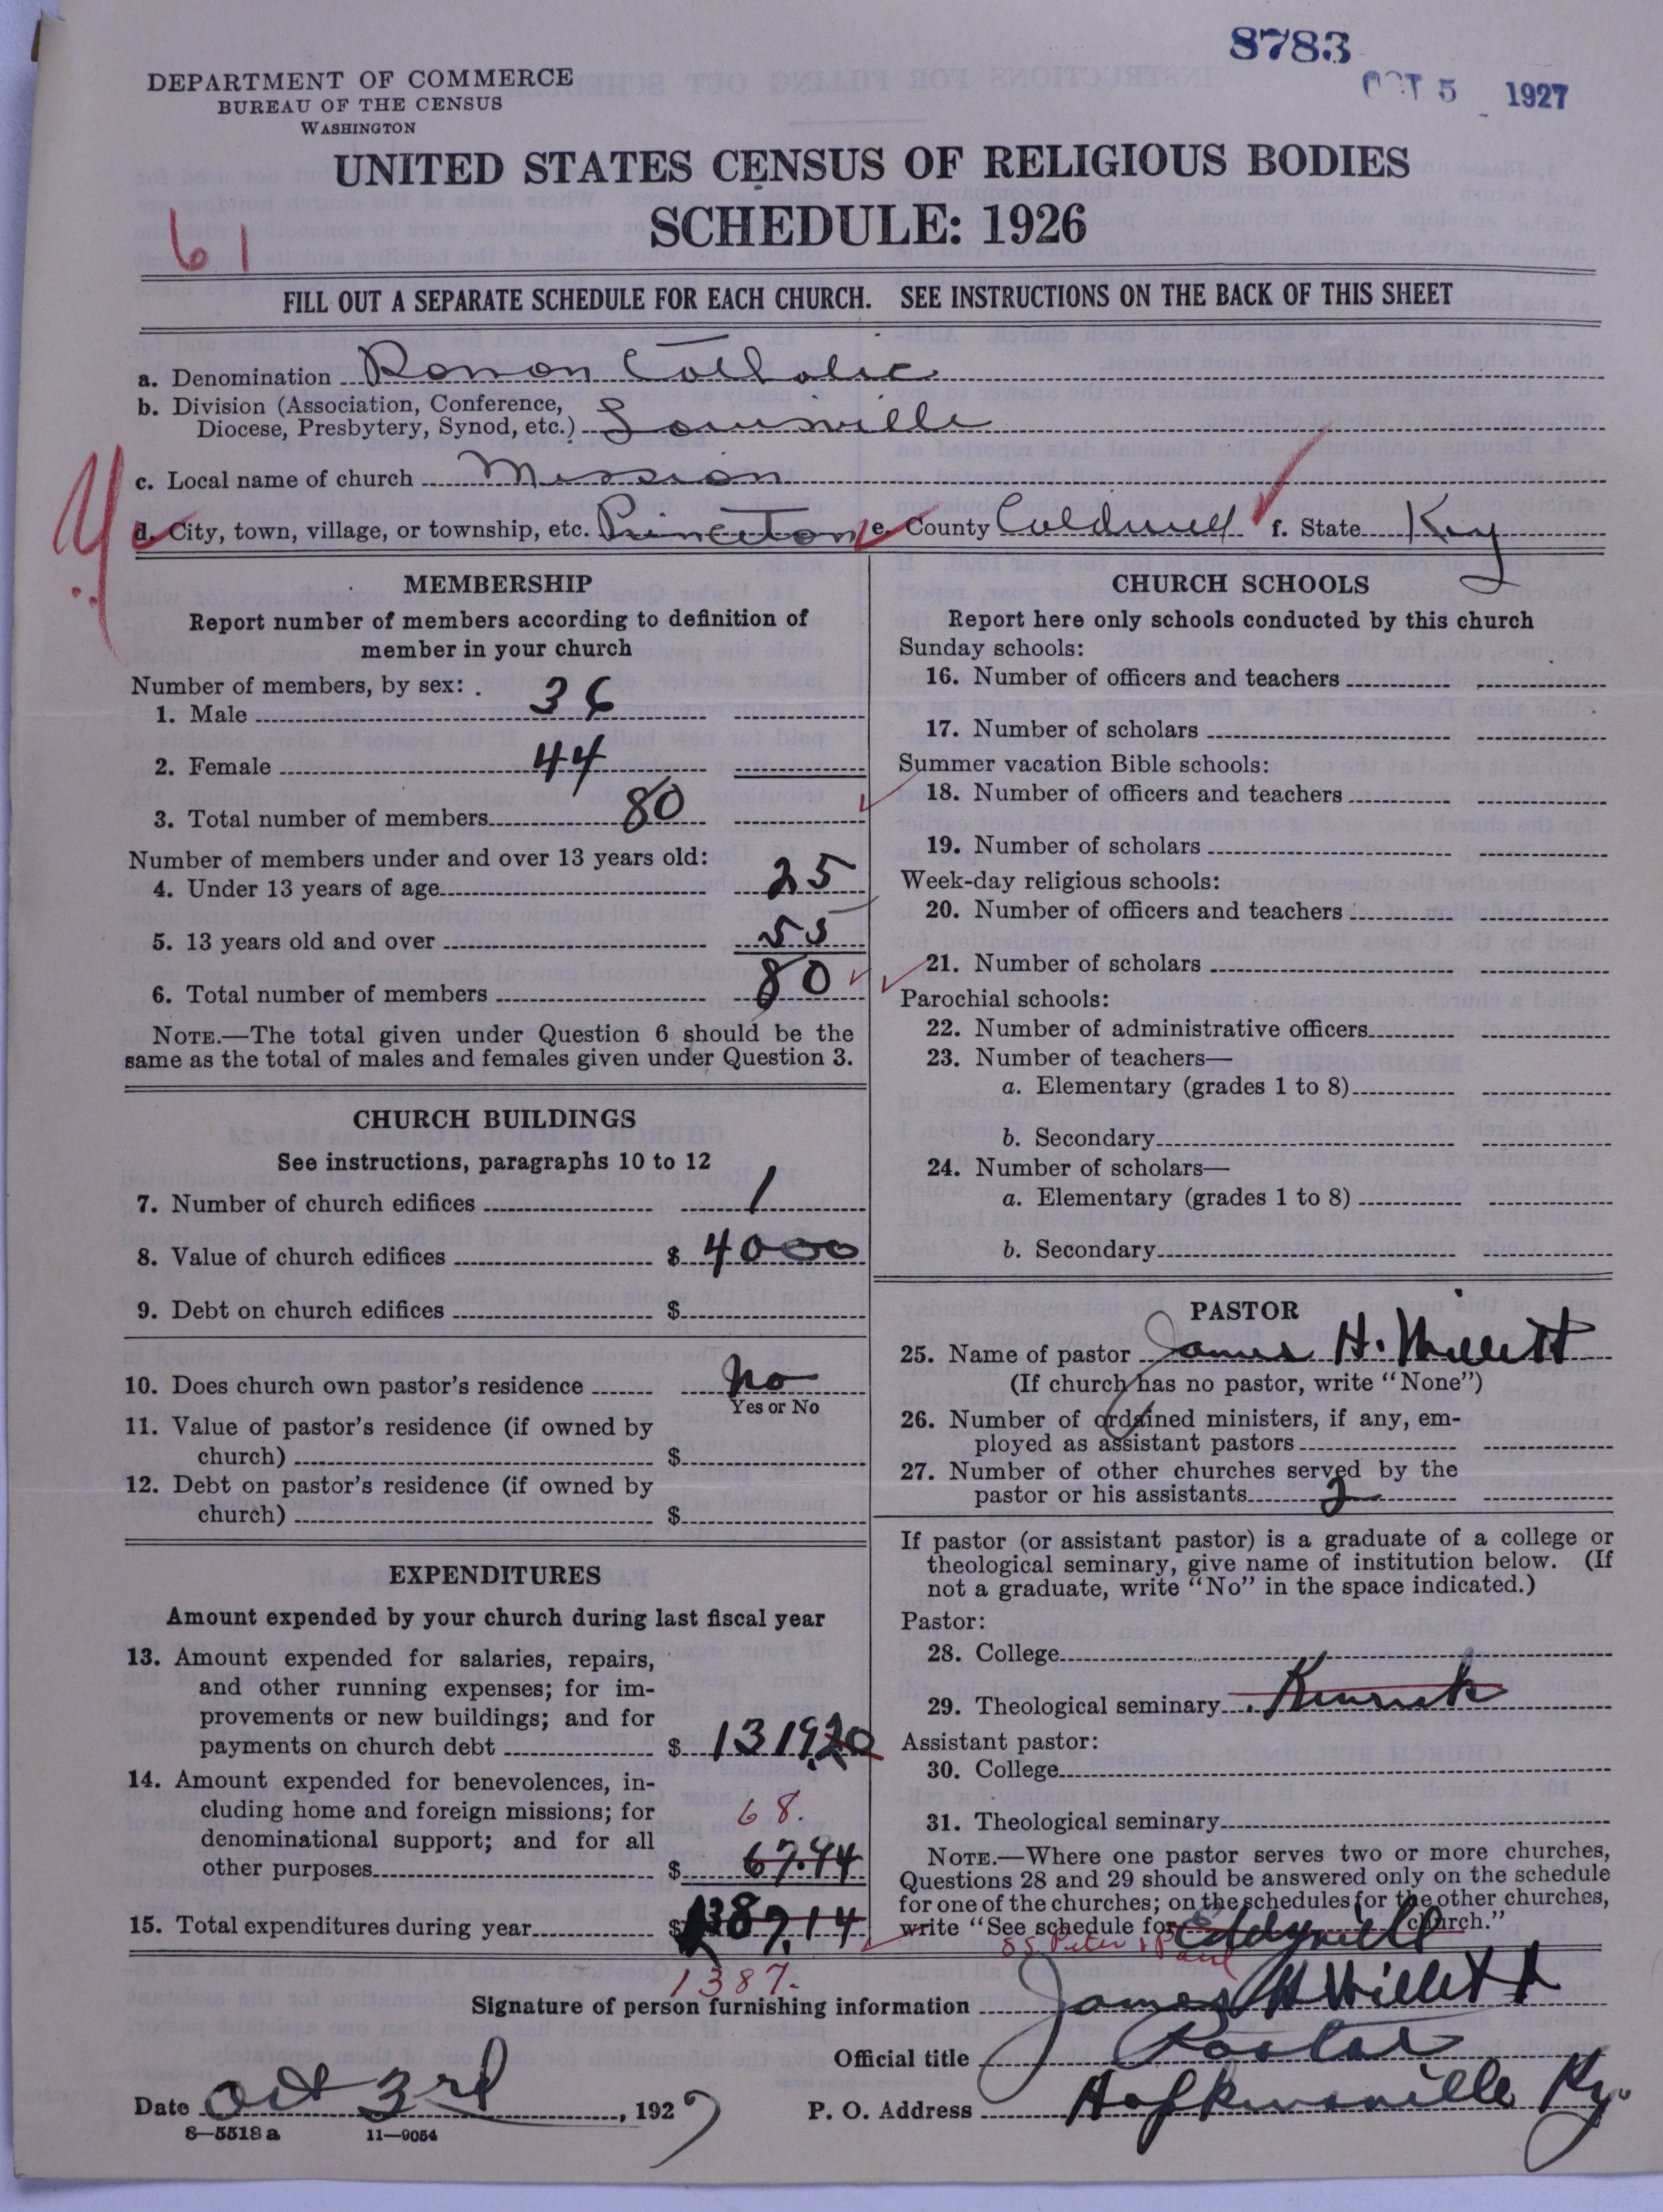 8783
OCT 5 1927
DEPARTMENT OF COMMERCE
BUREAU OF THE CENSUS
WASHINGTON
UNITED STATES CENSUS OF RELIGIOUS BODIES
SCHEDULE: 1926
61
FILL OUT A SEPARATE SCHEDULE FOR EACH CHURCH. SEE INSTRUCTIONS ON THE BACK OF THIS SHEET
a. Denomination Roman Catholic
b. Division (Association, Conference,
Diocese, Presbytery, Synod, etc.) Louisville
c. Local name of church Mission
d. City, town, village, or township, etc. Princeton e. County Caldwell f. State Ky
MEMBERSHIP
Report number of members according to definition of
member in your church
Number of members, by sex:
1. Male 36
2. Female 44
3. Total number of members 80
Number of members under and over 13 years old:
4. Under 13 years of age 25
5. 13 years old and over 55
6. Total number of members 80
NOTE.—The total given under Question 6 should be the
same as the total of males and females given under Question 3.
CHURCH BUILDINGS
See instructions, paragraphs 10 to 12
7. Number of church edifices 1
8. Value of church edifices $ 4000
9. Debt on church edifices $
10. Does church own pastor's residence No
Yes or No
11. Value of pastor's residence (if owned by
church) $
12. Debt on pastor's residence (if owned by
church) $
EXPENDITURES
Amount expended by your church during last fiscal year
13. Amount expended for salaries, repairs,
and other running expenses; for im-
provements or new buildings; and for
payments on church debt $ 1319.20
14. Amount expended for benevolences, in-
cluding home and foreign missions; for 68.
denominational support; and for all
other purposes $ 67.94
15. Total expenditures during year $ 1387.14
1387.
CHURCH SCHOOLS
Report here only schools conducted by this church
Sunday schools:
16. Number of officers and teachers
17. Number of scholars
Summer vacation Bible schools:
18. Number of officers and teachers
19. Number of scholars
Week-day religious schools:
20. Number of officers and teachers
21. Number of scholars
Parochial schools:
22. Number of administrative officers
23. Number of teachers—
a. Elementary (grades 1 to 8)
b. Secondary
24. Number of scholars—
a. Elementary (grades 1 to 8)
b. Secondary
PASTOR
25. Name of pastor James H. Willett
(If church has no pastor, write "None")
26. Number of ordained ministers, if any, em-
ployed as assistant pastors
27. Number of other churches served by the
pastor or his assistants 2
If pastor (or assistant pastor) is a graduate of a college or
theological seminary, give name of institution below. (If
not a graduate, write "No" in the space indicated.)
Pastor:
28. College
29. Theological seminary Kenrick
Assistant pastor:
30. College
31. Theological seminary
NOTE.—Where one pastor serves two or more churches,
Questions 28 and 29 should be answered only on the schedule
for one of the churches; on the schedules for the other churches,
write "See schedule for Eddyville church."
SS Peter & Paul
Signature of person furnishing information James H Willett
Official title Pastor
Date Oct 3rd, 1927 P. O. Address Hopkinsville Ky.
8—5518 a 11—9054